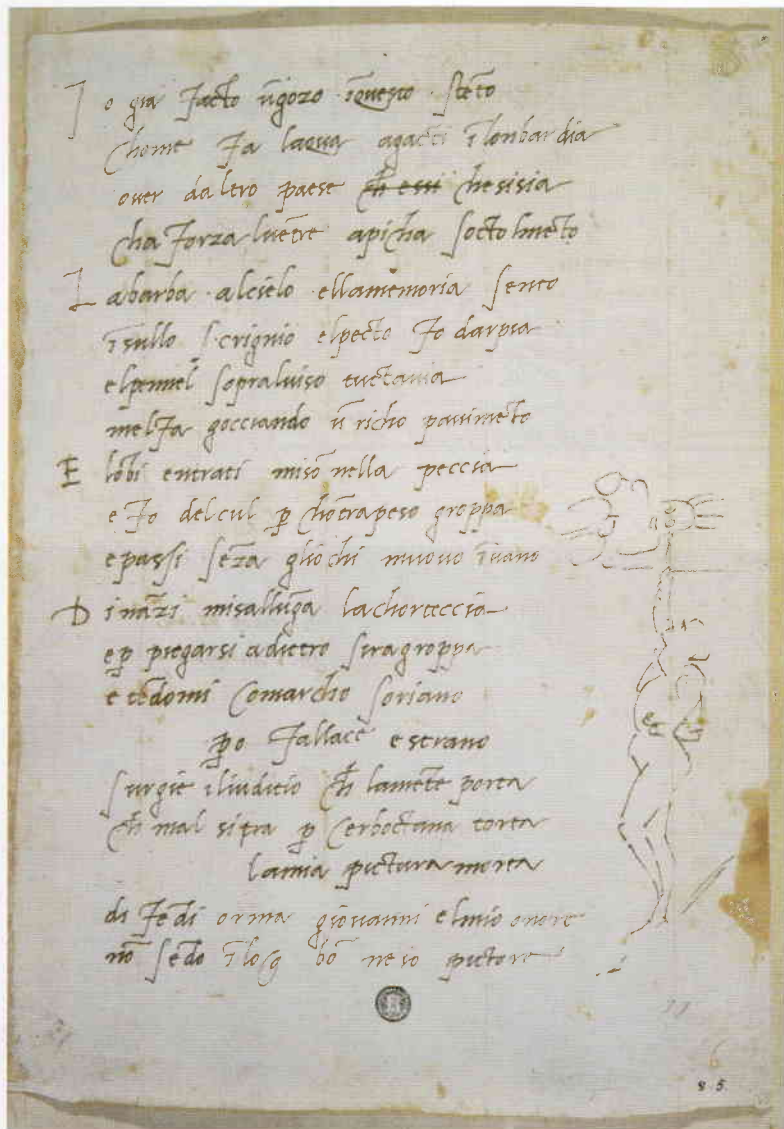 Io gia facto ū gozo ī questo stēto
chome fa laqua agacti ī lonbardia
over daltro paese ch̄ essi chesisia
cha forza lvētre apicha sotto lmēto
La barba alcielo ellamemoria sento
ī sullo scrignio elpecto fo darpia
elpennel sopraluiso tuctavia
melfa gocciando ū richo pavimēto
E lōbi entrati misō nella peccia
e fo delcul p̱ chōtrapeso groppa
epassi sēza gliochi muovo ī vano
Dināzi misallūga lachorteccia
ep̱ piegarsi adietro siragroppa
e tēdomi comarcho soriano
p̱o fallace e strano
surgie iliuditio ch̄ lamēte porta
ch̄ mal sitra p̱ cerboctana torta
lamia pictura morta
di fēdi orma giovanni elmio onore
nō sēdo ī loco bō ne io pictore
85